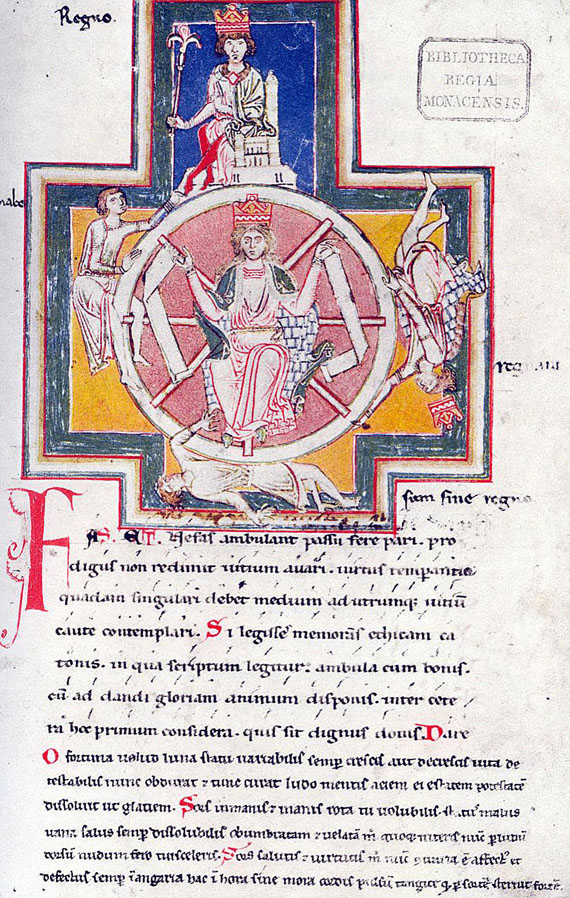 Regno.
BIBLIOTHECA
REGIA
MONACENSIS.
nabo
regnaui
sum sine regno
FAS. ET. Nefas ambulant passu fere pari. pro
digus non redimit uitium auari. uirtus temperantia
quadam singulari debet medium ad utrumq; uitiū
caute contemplari. Si legisse memoras ethicam ca
tonis. in qua scriptum legitur. ambula cum bonis.
cū ad dandi gloriam animum disponis. inter cete
ri hoc primum considera. quis sit dignus donis. Dare
O fortuna uelud luna statu uariabilis semp crescis aut decrescis uita de
testabilis nunc obdurat & tunc curat ludo mentis aciem egestatem potestatē
dissoluit ut glaciem. Sors inmanis & inanis rota tu uolubilis. statꝰ malus
uana salus semp dissolubilis obumbratam & uelatā m quoq; niteris nūc p ludū
dorsum nudum fero tui sceleris. Sors salutis & uirtutis m nūc ꝯtraria ē affectꝰ et
defectus semp ī angaria hac ī hora sine mora cordis pulsum tangite q p sortē sternit fortē